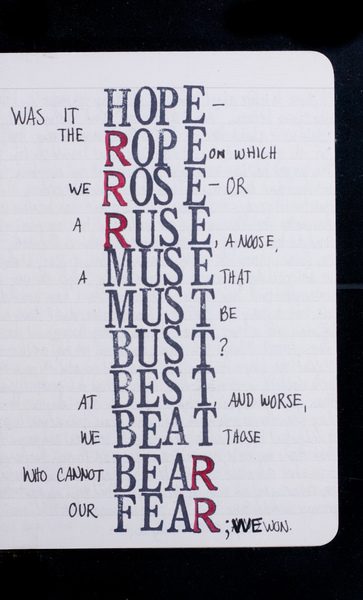 WAS IT HOPE-
THE ROPE ON WHICH
WE ROSE - OR
A RUSE, A NOOSE,
A MUSE THAT
MUST BE
BUST?
AT BEST, AND WORSE,
WE BEAT THOSE
WHO CANNOT BEAR
OUR FEAR; WE WON.